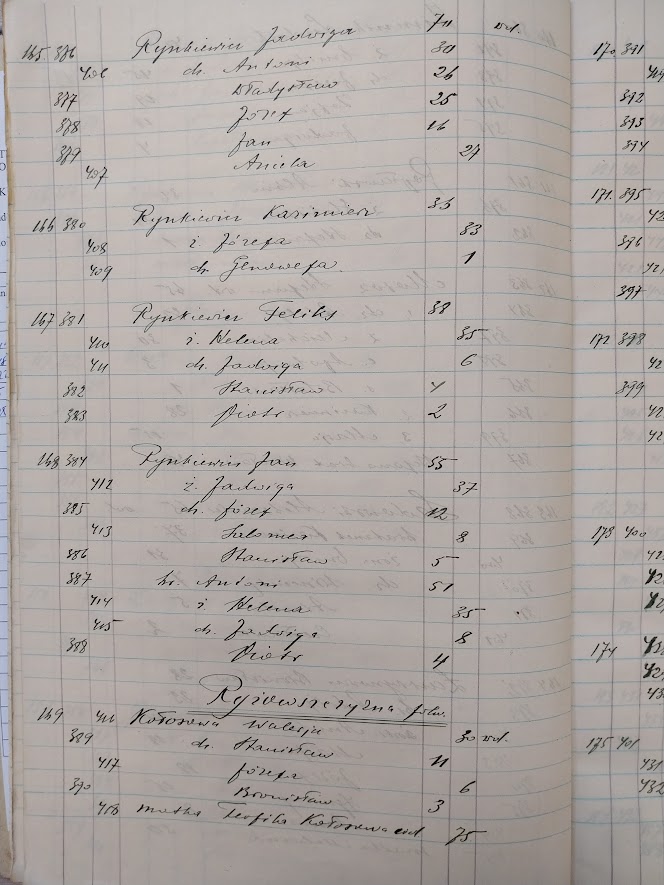 Rynkiewicz Jadwiga 70 wd.
165 376 dz. Antoni 30
406 Władysław 26
377 Józef 25
378 Jan 16
379 Aniela 27
407
166 380 Rynkiewicz Kazimierz 35
408 ż. Józefa 33
409 dz. Genowefa 1
167 381 Rynkiewicz Feliks 38
410 ż. Helena 35
411 dz. Jadwiga 6
382 Stanisław 4
383 Piotr 2
168 384 Rynkiewicz Jan 55
412 ż. Jadwiga 37
385 dz. Józef 12
413 Salomea 8
386 Stanisław 5
387 br. Antoni 51
414 ż. Helena 35
415 dz. Jadwiga 8
388 Piotr 4
folw.
169 416 Kołosowa Walerja 30 wd.
389 dz. Stanisław 11
417 Józefa 6
390 Bronisław 3
matka Teofila Kołosowa wd 75
170 391
392
393
394
171. 395
42
396
421
397
172 398
42
399
42
42
173 400
42
42
42
174 42
43
175 401
431
432